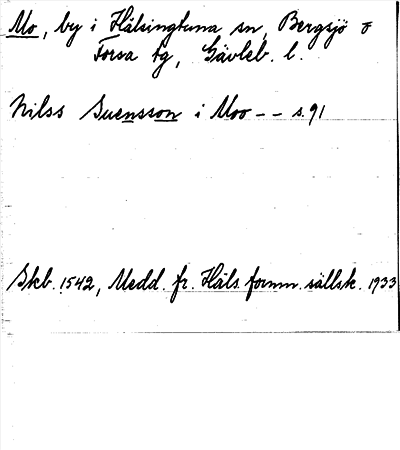 Mo, by i Hälsingtuna sn, Bergsjö o
Forsa tg, Gävleb. l.
Nilss Suensson i Moo -- s. 91
Skb. 1542, Medd. fr. Häls. fornm. sällsk. 1933